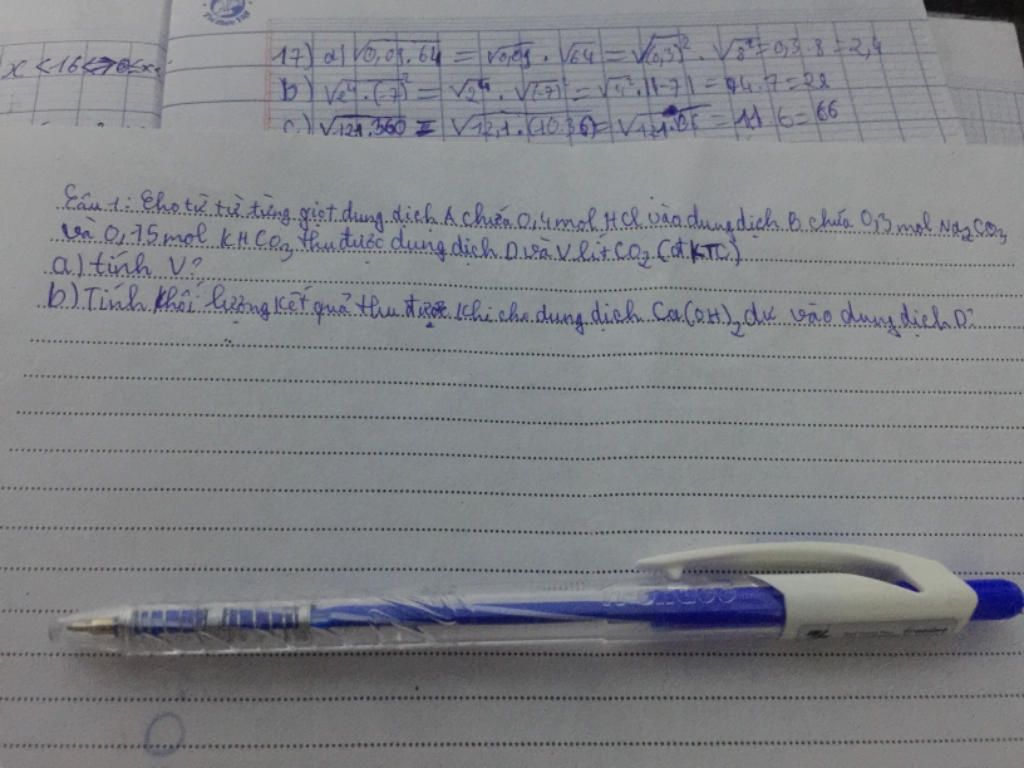 x < 16
17) a) √0,09.64 = √0,09 . √64 = √(0,3)² . √8² = 0,3 . 8 = 2,4
b) √2⁴.(-7)² = √2⁴ . √(-7)² = . |-7| = 4.7 = 28
c) √121.360 = √12,1.(10.36) = = 11.6 = 66
Câu 1: Cho từ từ từng giọt dung dịch A chứa 0,4 mol HCl vào dung dịch B chứa 0,3 mol Na₂CO₃
và 0,15 mol KHCO₃ thu được dung dịch D và V lít CO₂ (ở ĐKTC)
a) tính V?
b) Tính khối lượng kết quả thu được khi cho dung dịch Ca(OH)₂ dư vào dung dịch D?